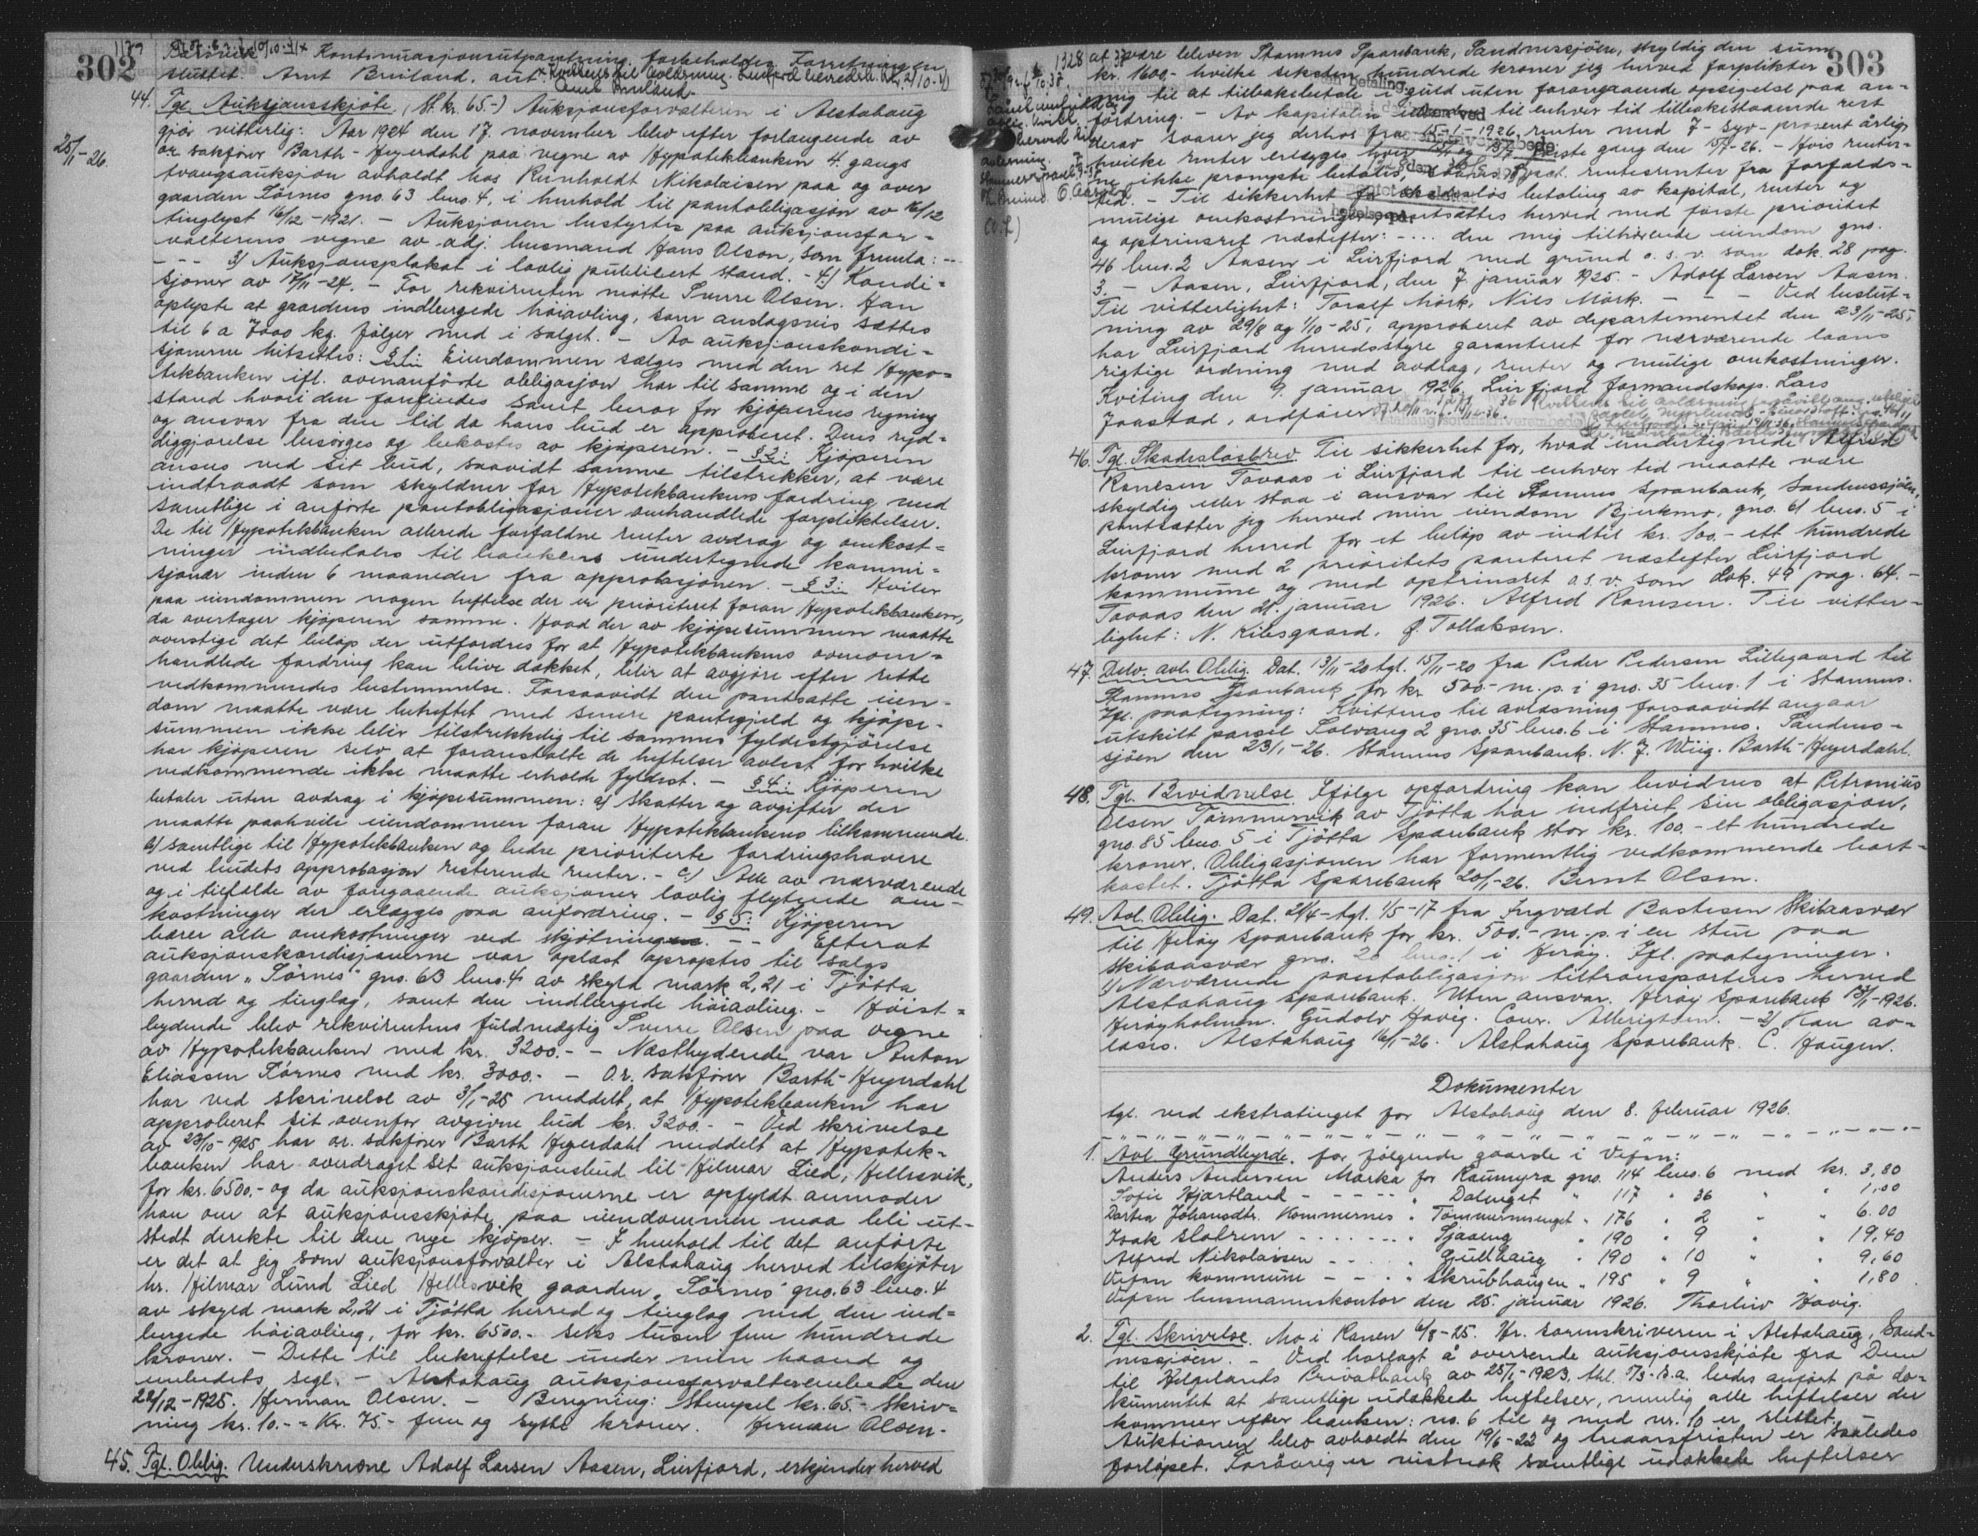 302
slüttet. Arnt Breiland, aut.
44. Tgl. Auksjonsskjøte. (St. kr. 65.-) Auksjonsforvalteren i Alstahaug
25/1-26.
gjør vitterlig: Aar 1924 den 17. november blev efter forlangende av
or. sakfører Barth-Heyerdahl paa vegne av Hypotekbanken 4. gangs
tvangsauksjon avholdt hos Reinholdt Nikolaisen paa og over
gaarden Tørnes gno. 63 bno. 4, i henhold til pantobligasjon av
tinglyst 16/12-1921. - Auksjonen bestyrtes paa auksjonsfor-
valterens vegne av adj. lensmand Hans Olson, som fremla: -
- - - 3) Auksjonsplakat i lovlig publisert stand. - 4) Kondi-
sjoner av 17/11-24. - For rekvirenten møtte Sverre Olsen. Han
oplyste at gaardens indbergede høiavling, som anslagsvis sættes
til 6 a 7000 kg. følger med i salget. - Av auksjonskondi-
sjonerne hitsettes: § 1: Eiendommen sælges med den ret Hypo-
tekbanken ifl. ovenanførte obligasjon har til samme og i den
stand hvori den forefindes samt beror for kjøperens regning
og ansvar fra den tid da hans bud er approberet. Dens ryd-
diggjørelse besørges og bekostes av kjøperen. - § 2: Kjøperen
ansees ved sit bud, saavidt samme tilstrekker, at være
indtraadt som skyldner for Hypotekbankens fordring med
samtlige i anførte pantobligasjoner omhandlede forpliktelser.
De til Hypotekbanken allerede forfaldne renter avdrag og omkost-
ninger indbetales til bankens undertegnede kommi-
sjonær inden 6 maaneder fra approbasjonen. - § 3: Hviler
paa eiendommen nogen heftelse der er prioriteret foran Hypotekbanken,
da overtager kjøperen samme. Hvad der av kjøpesummen maatte
overstige det beløp der utfordres for at Hypotekbankens ovenom-
handlede fordring kan blive dækket, blir at avgjøre efter rette
vedkommendes bestemmelse. Forsaavidt den pantsatte eien-
dom maatte være beheftet med senere pantegjeld og kjøpe-
summen ikke blir tilstrekkelig til sammes fyldestgjørelse
har kjøperen selv at foranstalte de heftelser avlest for hvilke
vedkommende ikke maatte erholde fyldest. - § 4: Kjøperen
betaler uten avdrag i kjøpesummen: a) Skatter og avgifter der
maatte paahvile eiendommen foran Hypotekbankens tilkommende.
b) samtlige til Hypotekbanken og bedre prioriterte fordringshavere
ved budets approbasjon resterende renter. - c) Alle av nærværende
og i tilfælde av foregaaende auksjoner lovlig flytende om-
kostninger der erlægges paa anfordring. - § 5: Kjøperen
bærer alle omkostninger ved skjøtningen. - - Efterat
auksjonskondisjonerne var oplæst opraptes til salgs
gaarden "Tørnes" gno. 63 bno. 4 av skyld mark 2,21 i Tjøtta
herred og tinglag, samt den indbergede høiavling. - Høist-
bydende blev rekvirentens fuldmægtig Sverre Olsen paa vegne
av Hypotekbanken med kr. 3200.- - Næstbydende var Anton
Eliassen Tørnes med kr. 3000.- - O.r. sakfører Barth-Heyerdahl
har ved skrivelse av 3/1-25 meddelt, at Hypotekbanken har
approberet sit ovenfor avgivne bud kr. 3200.- - Ved skrivelse
av 23/10-1925 har or. sakfører Barth Heyerdahl meddelt at Hypotek-
banken har overdraget sit auksjonsbud til Hilmar Lied, Hellesvik,
for kr. 6500,- og da auksjonskondisjonerne er opfyldt anmoder
han om at auksjonsskjøte paa eiendommen maa bli ut-
stedt direkte til den nye kjøper. - I henhold til det anførte
er det at jeg som auksjonsforvalter i Alstahaug herved tilskjøter
hr. Hilmar Lund Lied Hellesvik gaarden "Tørnes" gno. 63 bno. 4
av skyld mark 2,21 i Tjøtta herred og tinglag med den ind-
bergede høiavling, for kr. 6500.- seks tusen fem hundrede
kroner. - Dette til bekreftelse under min haand og
embedets segl. - Alstahaug auksjonsforvalterembede den
22/12-1925. Herman Olsen. - Beregning: Stempel kr. 65.- Skriv-
ning kr. 10.- = Kr. 75.- fem og sytti kroner. Herman Olsen.
45. Tgl. Oblig. Underskrevne Adolf Larsen Aasen, Leirfjord, erkjender herved
303
at være bleven Stamnes Sparebank, Sandnessjøen, skyldig den sum
kr. 1600.- hvilke seksten hundrede kroner jeg herved forplikter
mig til at tilbakebetale i guld uten forangaaende opsigelse paa an-
fordring. - Av kapitalen eller den ved til enhver tid tilbakestaaende rest
derav svarer jeg derhos fra 15-1-1926, renter med 7 - syv - prosent årlig
hvilke renter erlægges hver første gang den 15/7-26. - Hvis renter-
ne ikke promte betales, svares rentesrenter fra forfalds-
tid. - Til sikkerhet for skadesløs betaling av kapital, renter og
mulige omkostninger pantsættes herved med første prioritet
og optrinsret næstefter: - ... den mig tilhørende eiendom gno.
46 bno. 2 Aasen i Leirfjord med grund o. s. v. som dok. 28 pag.
3. - Aasen, Leirfjord, den 7 januar 1925. - Adolf Larsen Aasen.
Til vitterlighet: Toralf Mork, Nils Mork. - - - Ved beslut-
ning av 29/8 og 1/10-25, approberet av departementet den 23/11-25,
har Leirfjord herredsstyre garanteret for nærværende laans
rigtige ordning med avdrag, renter og mulige omkostninger.
Kviting den 9. januar 1926. Leirfjord formandskap. Lars
Jonstad, ordfører.
46. Tgl. Skadesløsbrev. Til sikkerhet for, hvad undertegnede Alfred
Ranesen Tovaas i Leirfjord til enhver tid maatte være
skyldig eller staa i ansvar til Stamnes Sparebank, Sandnessjøen,
pantsætter jeg herved min eiendom Bjerkmo, gno. 61 bno. 5 i
Leirfjord herred for et beløp av indtil kr. 100.- ett hundrede
kroner med 2 prioritets panteret næstefter Leirfjord
kommune og med optrinsret o.s.v. som dok. 49 pag. 64. -
Tovaas den 21. januar 1926. Alfred Ranesen. Til vitter-
lighet: N. Kibsgaard. Ø. Tollaksen.
47. Delv. avl. Oblig. Dat. 13/11-20 tgl. 15/11-20 fra Peder Pedersen Lillegaard til
Stamnes Sparebank for kr. 500.- m. p. i gno. 35 bno. 1 i Stamnes.
Ifl. paategning: Kvitteres til avløsning forsaavidt angaar
utskilt parsel Solvang 2 gno. 35 bno. 6 i Stamnes. Sandnes-
sjøen den 23/1-26. Stamnes Sparebank. N. J. Wiig. Barth-Heyerdahl.
48. Tgl. Bevidnelse. Ifølge opfordring kan bevidnes at Petronius
Olsen Tømmervik av Tjøtta har indfriet sin obligasjon,
gno. 85 bno. 5 i Tjøtta Sparebank stor kr. 100.- et hundrede
kroner. Obligasjonen har formentlig vedkommende bort-
kastet. Tjøtta Sparebank 20/1-26. Bernt Olsen.
49. Avl. Oblig. Dat. 21/4-tgl. 1/5-17 fra Ingvald Bastesen Skibaasvær
til Herøy Sparebank for kr. 500.- m. p. i en stue paa
Skibaasvær gno. 20 bno. 1 i Herøy. Ifl. paategninger.
1) Nærværende pantobligasjon tiltransporteres herved
Alstahaug Sparebank. Uten ansvar. Herøy Sparebank 13/1-1926.
Herøyholmen. Gudolv Havig. Conr. Albrigtsen. - 2) Kan av-
læses. Alstahaug 16/1-26. Alstahaug Sparebank. C. Haugen.
Dokumenter
tgl. ved ekstratinget for Alstahaug den 8. februar 1926.
1. Avl. Grundbyrde. for følgende gaarde i Vefsn:
Anders Andersen Marka for Raumyra gno. 114 bno. 6 med kr. 3,80
Sofie Hjartland - - - - " Dalenget " 117 " 36 " " 1,00
Dortea Johansdtr. Kommernes " Tømmermenget " 176 " 2 " " 6.00
Isak Slotrem - - - - - - " Sjaaeng " 190 " 9 " " 19,40
Alfred Nikolaisen - - - - " Gullhaug " 190 " 10 " " 9,60
Vefsn kommune - - - " Skrubhaugen " 195 " 9 " " 1,80
Vefsn lensmannskontor den 25. januar 1926. Thorleiv Havig.
2. Tgl. Skrivelse. Mo i Ranen 6/8-25. Hr. sorenskriveren i Alstahaug, Sand-
nessjøen. - Ved høflagt å oversende auksjonsskjøte fra Dem
til Helgelands Privatbank av 25/1-1923, tbl. 1/3-s.a. bedes anført på do-
kumentet at samtlige udækkede heftelser, nemlig alle heftelser der
kommer efter banken: no. 6 til og med nr. 10 er slettet.
Auktionen blev avholdt den 19/6-22 og treaarsfristen er saaledes
forløpet. Forøvrig er vistnok samtlige udækkede heftelser